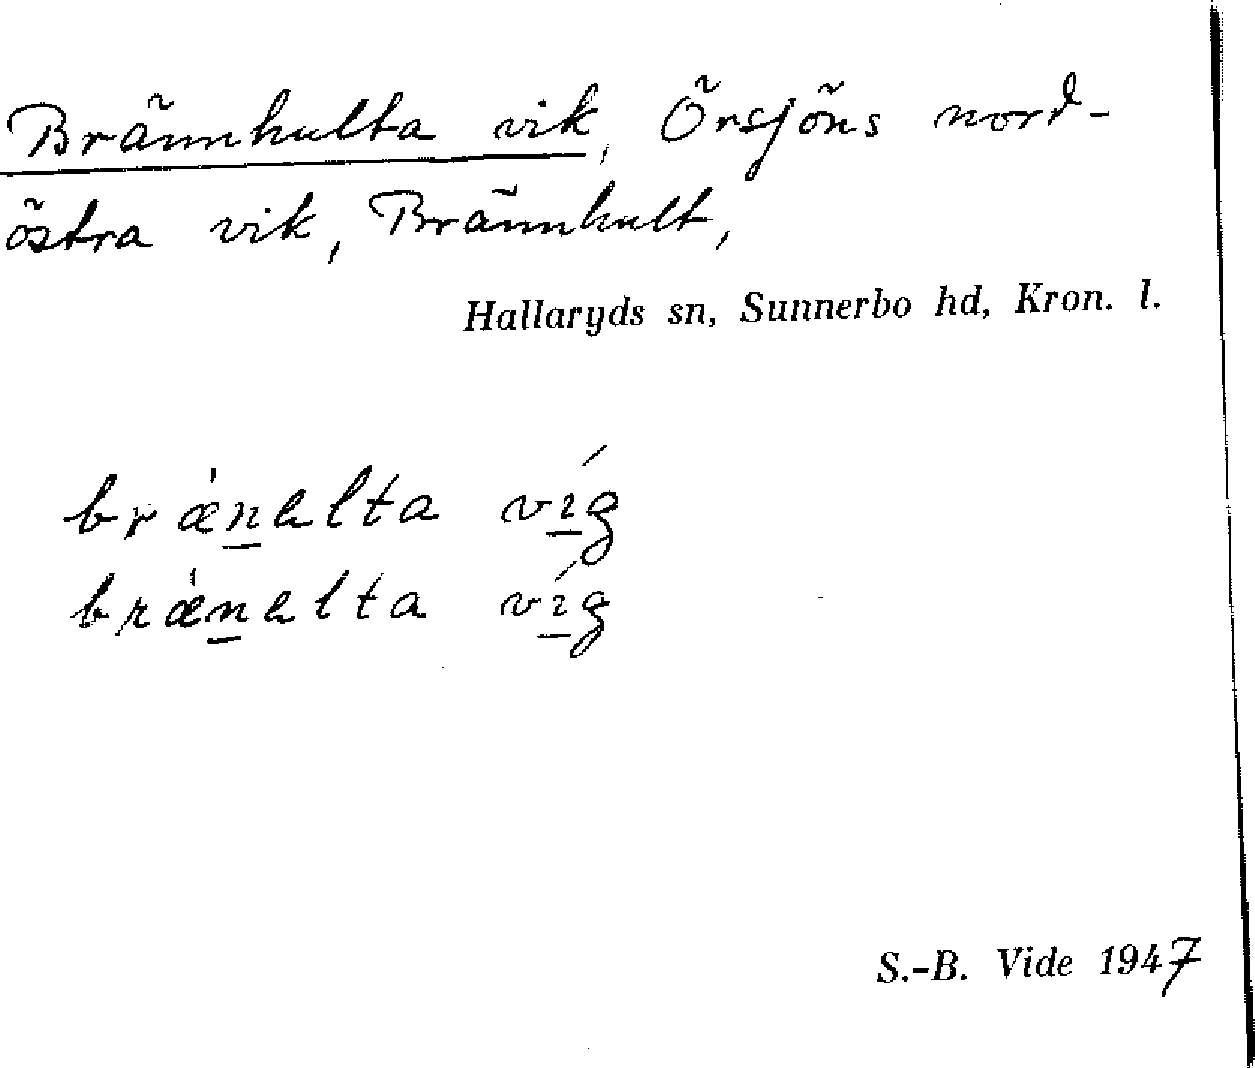 Brännhulta vik, Örsjöns nord-
östra vik, Brännhult,
Hallaryds sn, Sunnerbo hd, Kron. l.
brǽn̲ալta víg
brǽn̲ալta víg
S.-B. Vide 1947